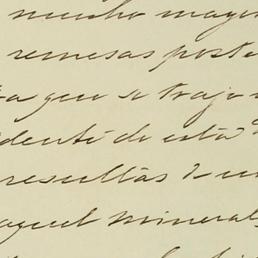 mucho mayor
remesas poste
a que se trajo
dente de esta
resultas de un
aquel mineral